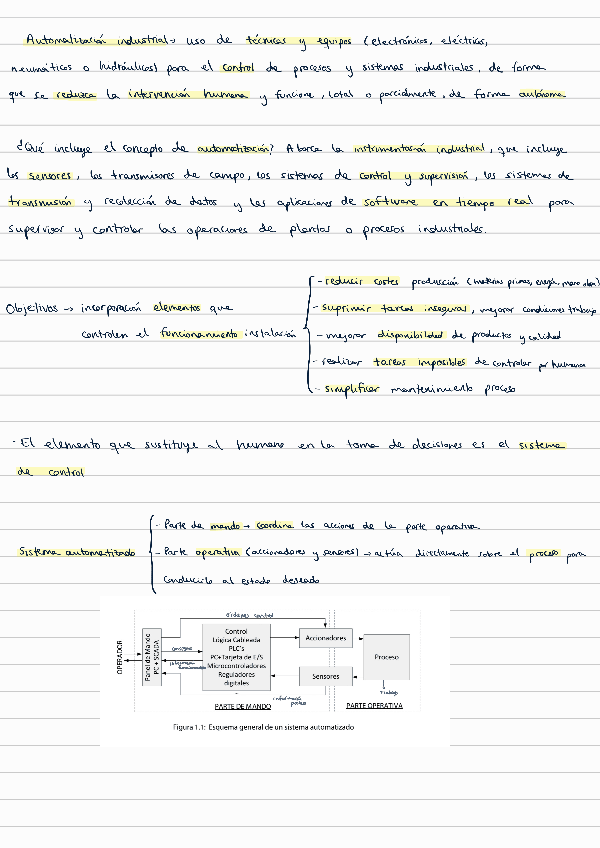 Automatización industrial → uso de técnicas y equipos (electrónicos, eléctricos,
neumáticos o hidráulicos) para el control de procesos y sistemas industriales, de forma
que se reduzca la intervención humana y funcione, total o parcialmente, de forma autónoma
¿Qué incluye el concepto de automatización? Abarca la instrumentación industrial, que incluye
los sensores, los transmisores de campo, los sistemas de control y supervisión, los sistemas de
transmisión y recolección de datos y las aplicaciones de software en tiempo real para
supervisar y controlar las operaciones de plantas o procesos industriales.
Objetivos → incorporación elementos que
controlen el funcionamiento instalación
- reducir costes producción (materias primas, energía, mano obra)
- suprimir tareas inseguras, mejorar condiciones trabajo
- mejorar disponibilidad de productos y calidad
- realizar tareas imposibles de controlar por humanos
- simplificar mantenimiento proceso
· El elemento que sustituye al humano en la toma de decisiones es el sistema
de control
Sistema automatizado
- Parte de mando → coordina las acciones de la parte operativa
- Parte operativa (accionadores y sensores) → actúa directamente sobre el proceso para
conducirlo al estado deseado
órdenes control
OPERADOR
Panel de Mando
PC + SCADA
consignas
Control
Lógica Cableada
PLC's
PC+Tarjeta de E/S
Microcontroladores
Reguladores
digitales
Accionadores
Sensores
Proceso
PARTE DE MANDO
PARTE OPERATIVA
Figura 1.1: Esquema general de un sistema automatizado